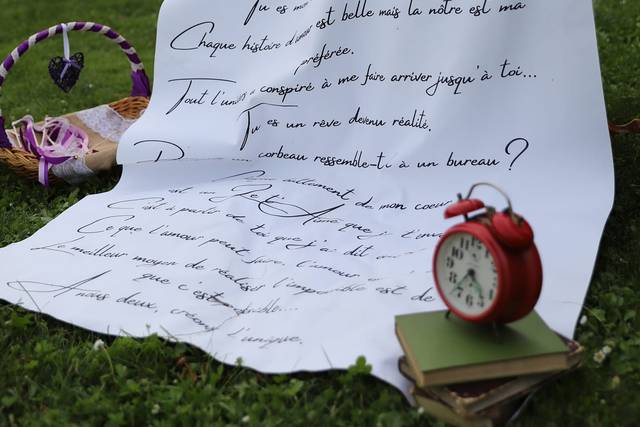 Tu es mon
Chaque histoire d'amour est belle mais la nôtre est ma
préférée.
Tout l'univers a conspiré à me faire arriver jusqu'à toi...
Tu es un rêve devenu réalité.
corbeau ressemble-t-i à un bureau ?
de mon coeur
est un Je t'Aime que
C'est à partir de toi que j'ai dit
Ce que l'amour peut faire, l'amour
Le meilleur moyen de réaliser l'impossible est de
que c'est possible...
A nous deux, créons l'unique.